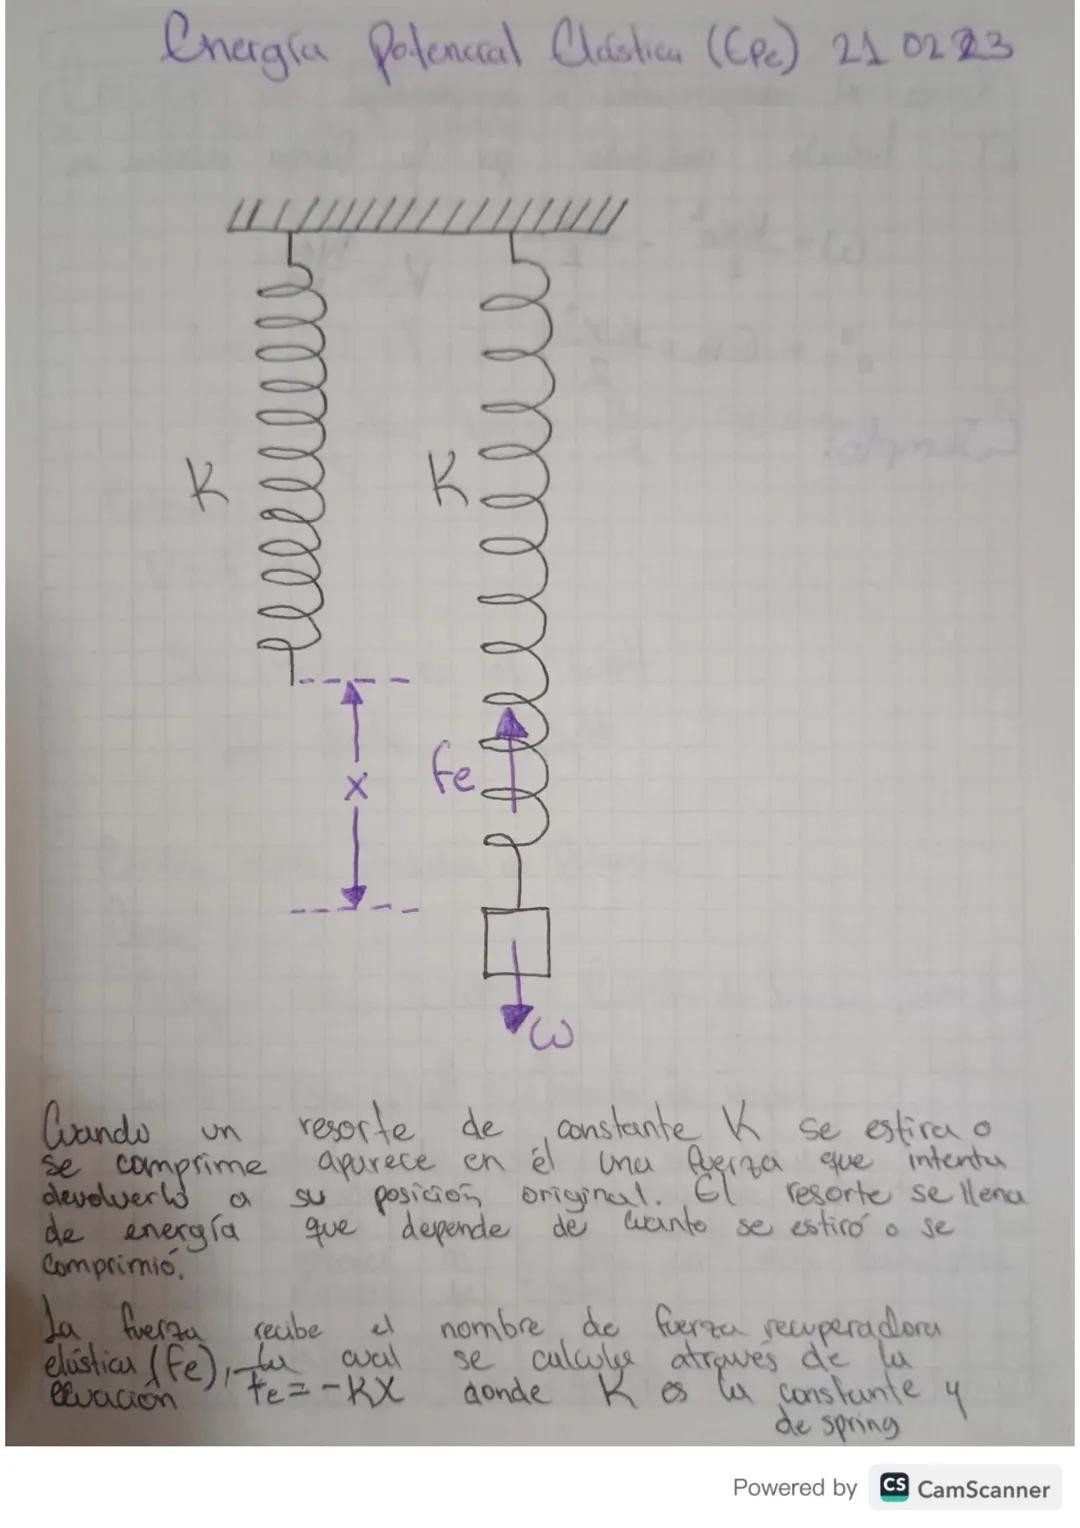 Energía Potencial Elástica (Epe) 21 02 23
K
K
x
fe
ω
Cuando un resorte de constante K se estira o
se comprime aparece en él una fuerza que intenta
devolverlo a su posición original. El resorte se llena
de energía que depende de cuanto se estiró o se
comprimió.
La fuerza recibe el nombre de fuerza recuperadora
elástica (fe), la cual se calcula através de la
ecuación fe = -KX donde K es la constante y
de spring
Powered by CS CamScanner